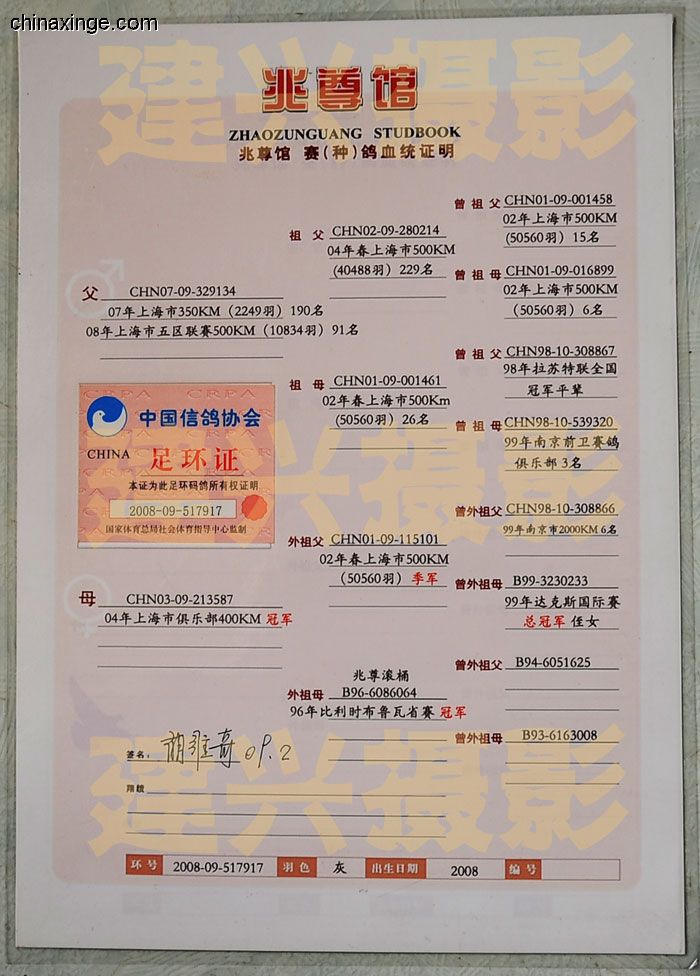 chinaxinge.com
建兴摄影
兆尊馆
ZHAOZUNGUANG STUDBOOK
兆尊馆 赛(种)鸽血统证明
父 CHN07-09-329134
07年上海市350KM (2249羽) 190名
08年上海市五区联赛500KM (10834羽) 91名
祖父 CHN02-09-280214
04年春上海市500KM
(40488羽) 229名
曾祖父 CHN01-09-001458
02年上海市500KM
(50560羽) 15名
曾祖母 CHN01-09-016899
02年上海市500KM
(50560羽) 6名
祖母 CHN01-09-001461
02年春上海市500Km
(50560羽) 26名
曾祖父 CHN98-10-308867
98年拉苏特联全国
冠军平辈
曾祖母 CHN98-10-539320
99年南京前卫赛鸽
俱乐部 3名
CRPA CRPA CRPA
中国信鸽协会
CHINA 足环证
本证为此足环码鸽所有权证明
2008-09-517917
国家体育总局社会体育指导中心监制
建兴摄影
母 CHN03-09-213587
04年上海市俱乐部400KM 冠军
外祖父 CHN01-09-115101
02年春上海市500KM
(50560羽) 季军
曾外祖父 CHN98-10-308866
99年南京市2000KM 6名
曾外祖母 B99-3230233
99年达克斯国际赛
总冠军 侄女
兆尊滚桶
外祖母 B96-6086064
96年比利时布鲁瓦省赛 冠军
曾外祖父 B94-6051625
曾外祖母 B93-6163008
签名: 09.2
翔蛾
建兴摄影
环号 2008-09-517917 羽色 灰 出生日期 2008 编号